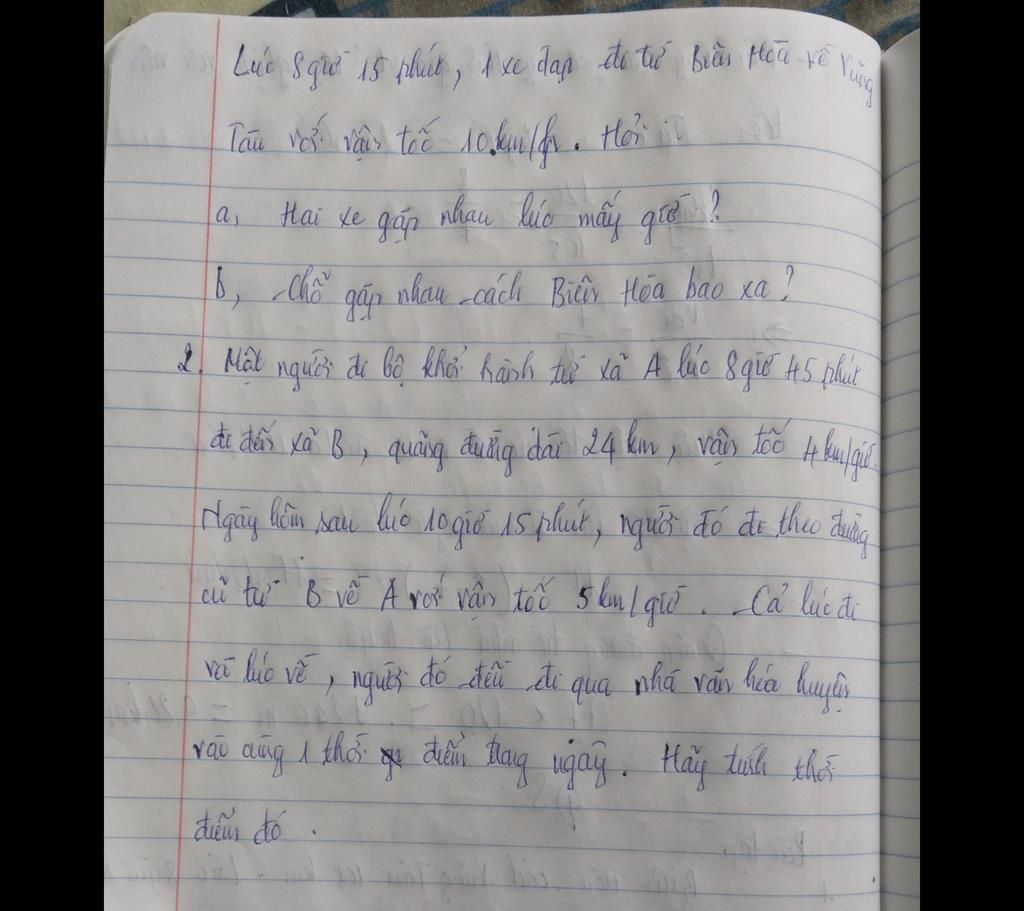 Lúc 8 giờ 15 phút, 1 xe đạp đi từ Biên Hòa về Vũng
Tàu với vận tốc 10 km/h. Hỏi :
a, Hai xe gặp nhau lúc mấy giờ?
b, Chỗ gặp nhau cách Biên Hòa bao xa?
2. Một người đi bộ khởi hành từ xã A lúc 8 giờ 45 phút
đi đến xã B, quãng đường dài 24 km, vận tốc 4 km/giờ.
Ngày hôm sau lúc 10 giờ 15 phút, người đó đi theo đường
cũ từ B về A với vận tốc 5 km/giờ. Cả lúc đi
và lúc về, người đó đều đi qua nhà văn hóa huyện
vào cùng 1 thời điểm trong ngày. Hãy tính thời
điểm đó.